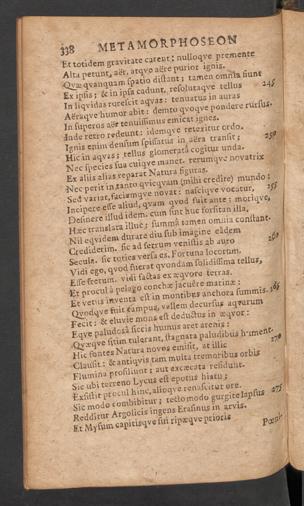 338 METAMORPHOSEON
Et totidem gravitate carent; nulloqve premente
Alta petunt, aër, atqve aëre purior ignis.
Qvæ qvanquam spatio distant; tamen omnia fiunt
Ex ipsis; & in ipsa cadunt, resolutaqve tellus 245
In liqvidas rorescit aqvas: tenuatus in auras
Aëraqve humor abit: demto qvoqve pondere rursus.
In superos aër tenuissimus emicat ignes.
Inde retro redeunt: idemqve retexitur ordo.
Ignis enim densum spissatus in aëra transit; 250
Hic in aqvas; tellus glomeratâ cogitur unda.
Nec species sua cuiqve manet. rerumqve novatrix
Ex aliis alias reparat Natura figuras.
Nec perit in tanto qvicqvam (mihi credite) mundo:
Sed variat, faciemqve novat: nasciqve vocatur, 255
Incipere esse aliud, qvam qvod fuit ante: moriqve,
Desinere illud idem. cum sint huc forsitan illa,
Hæc translata illuc; summâ tamen omnia constant.
Nil eqvidem durare diu sub imagine eâdem
Crediderim. sic ad ferrum venistis ab auro 260
Secula. sic toties versa es, Fortuna locorum.
Vidi ego, qvod fuerat qvondam solidissima tellus,
Esse fretum. vidi factas ex æqvore terras.
Et procul à pelago conchæ jacuêre marinæ:
Et vetus inventa est in montibus anchora summis. 265
Qvodqve fuit campus, vallem decursus aqvarum
Fecit: & eluvie mons est deductus in æqvor:
Eqve paludosâ siccis humus aret arenis:
Qvæqve sitim tulerant, stagnata paludibus hument.
Hic fontes Natura novos emisit, at illic 270
Clausit: & antiqvis tam multa tremoribus orbis
Flumina prosiliunt; aut excæcata residunt.
Sic ubi terreno Lycus est epotus hiatu;
Exsistit procul hinc, alioqve renascitur ore.
Sic modo combibitur; tecto modo gurgite lapsus 275
Redditur Argolicis ingens Erasinus in arvis.
Et Mysum capitisqve sui ripæqve prioris